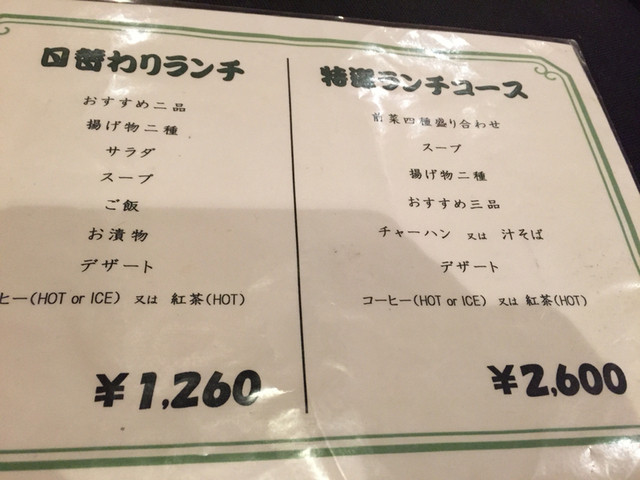 日替わりランチ
おすすめ二品
揚げ物二種
サラダ
スープ
ご飯
お漬物
デザート
ヒー(HOT or ICE) 又は 紅茶(HOT)
¥1,260
特選ランチコース
前菜四種盛り合わせ
スープ
揚げ物二種
おすすめ三品
チャーハン 又は 汁そば
デザート
コーヒー(HOT or ICE) 又は 紅茶(HOT)
¥2,600